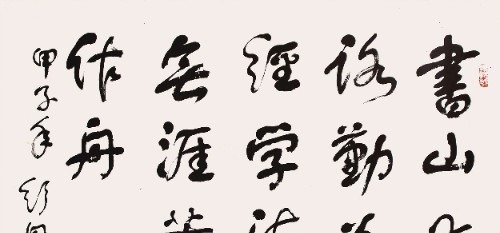 書山
路勤
徑学
無涯苦
作舟
甲子年